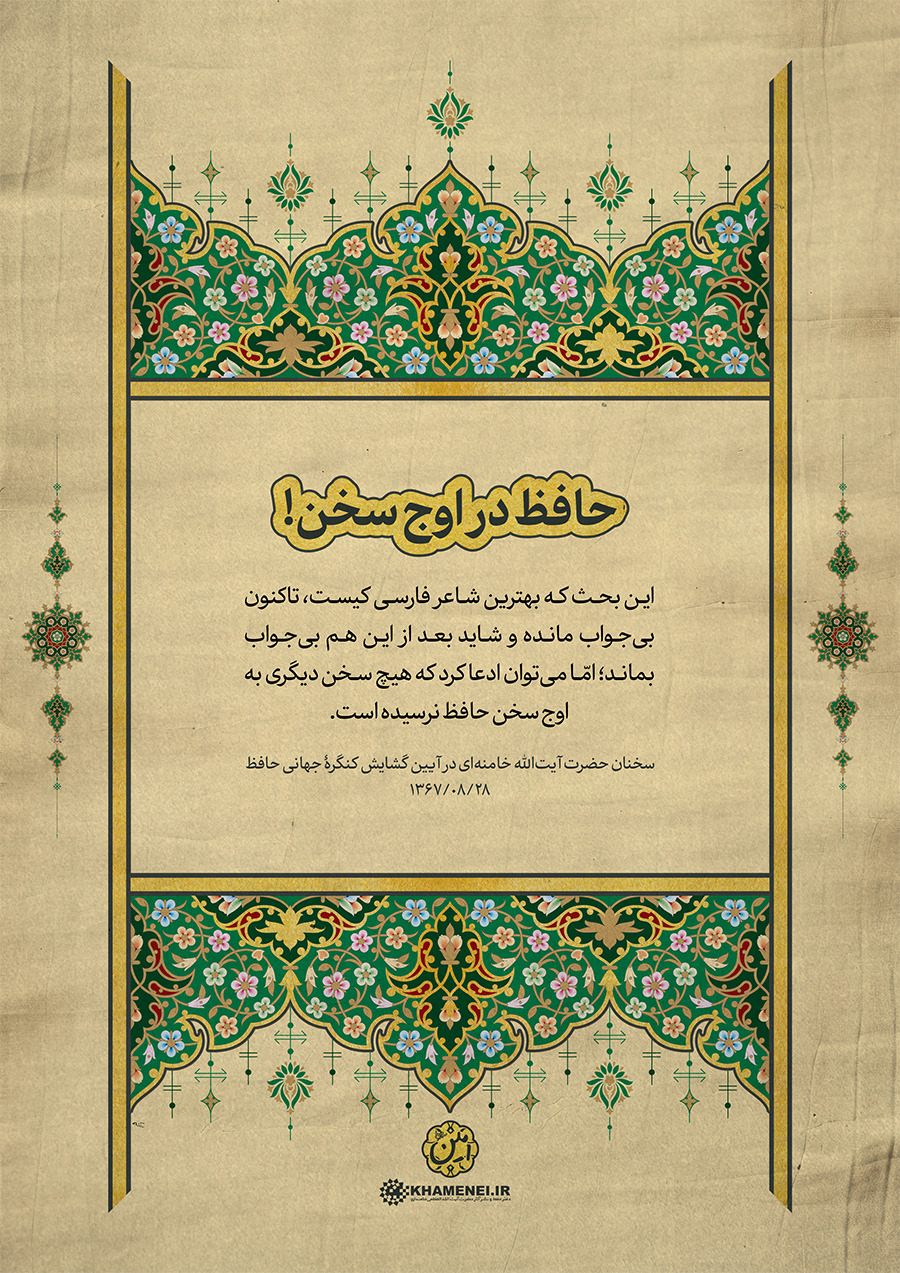 حافظ در اوج سخن!
این بحث که بهترین شاعر فارسی کیست، تاکنون
بی‌جواب مانده و شاید بعد از این هم بی‌جواب
بماند؛ امّا می‌توان ادعا کرد که هیچ سخن دیگری به
اوج سخن حافظ نرسیده است.
سخنان حضرت آیت‌الله خامنه‌ای در آیین گشایش کنگرهٔ جهانی حافظ
۱۳۶۷/۰۸/۲۸
KHAMENEI.IR